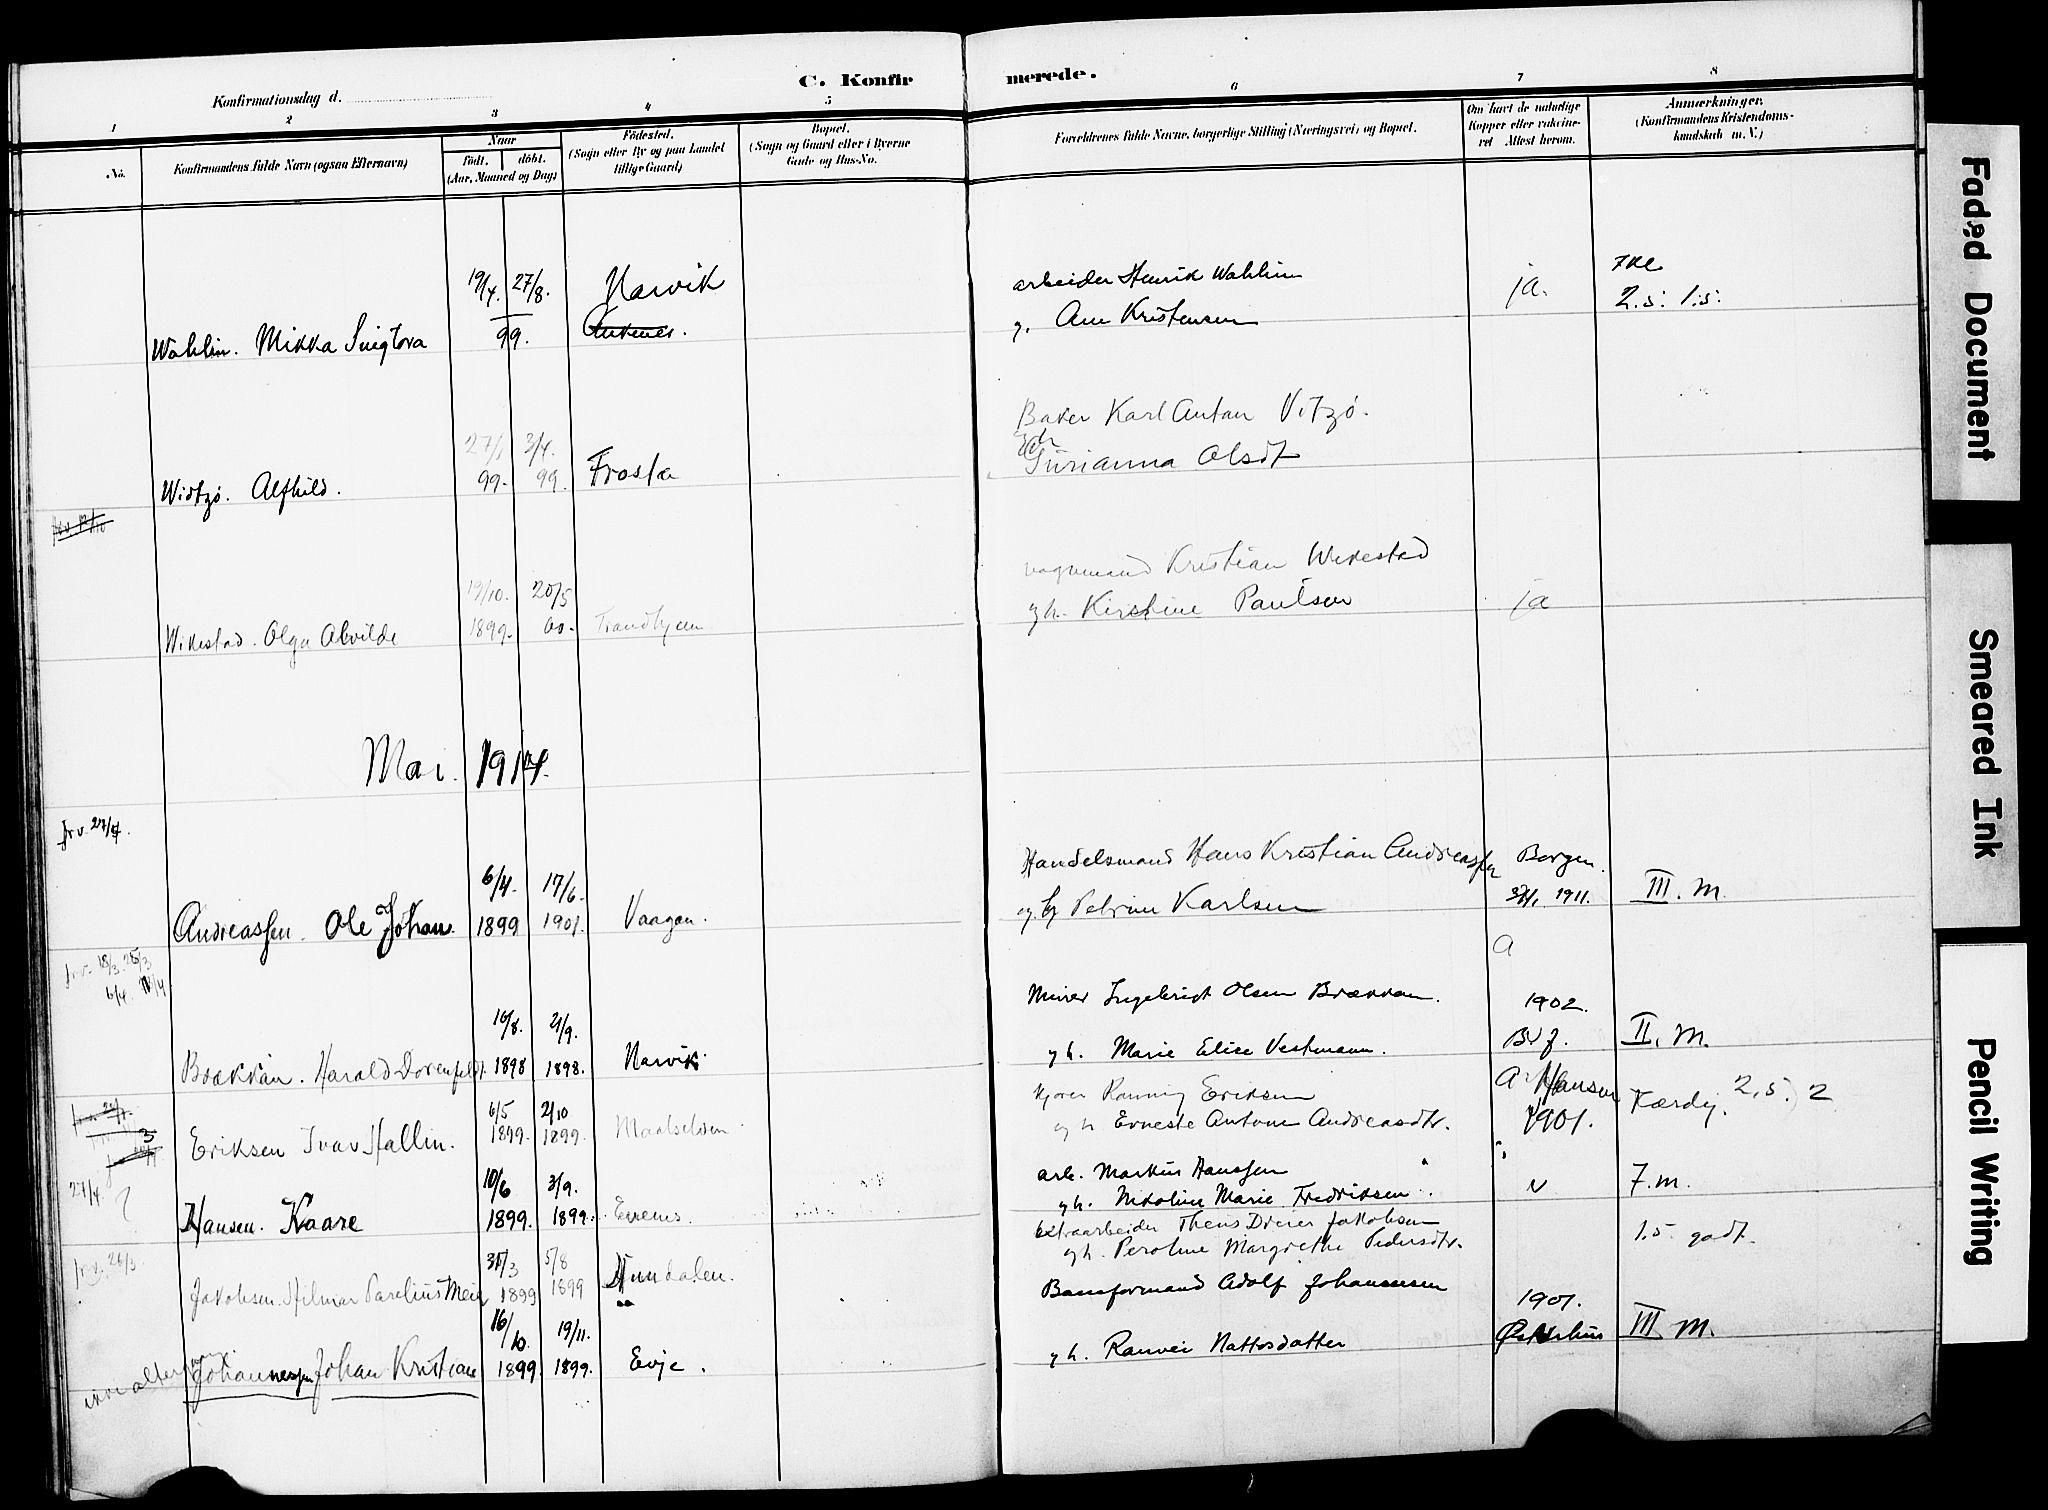 C. Konfirmerede.
Konfirmationsdag d.
1 2 3 4 5 6 7 8
No.
Konfirmandens fulde Navn (ogsaa Efternavn)
Naar
født. døbt.
(Aar, Maaned og Dag)
Fødested.
(Sogn eller By og paa Landet
tillige Gaard)
Bopæl.
(Sogn og Gaard eller i Byerne
Gade og Hus-No.
Forældrenes fulde Navne, borgerlige Stilling (Næringsvei) og Bopæl.
Om havt de naturlige
Kopper eller vakcine-
ret Attest herom.
Anmærkninger.
(Konfirmandens Kristendoms-
kundskab m. V.)
19/4. 27/8. Narvik arbeider Henrik Wahlin ja. 7kl.
Wahlin. Mikka 99. Ankenes. g. Ane Kristensen 2.5. 1.5.
Baker Karl Anton Vitzø.
27/1 3/4.
Widtzø. Alfhild. 99. 99. Frosta Gurianna Olsdt
19/10. 20/5 Kristian Wikestad
Wikestad. Olga Alvilde 1899. 00. Trondhjem gh. Kirstine Paulsen ja
Mai. 1914.
frv. 27/4.
6/4. 17/6. Handelsmand Hans Kristian Andreassen Bergen.
Andreassen. Ole Johan. 1899 1901. Vaagan. og h Petrine Karlsen 1911. III. M.
frv. 18/3. 25/3
6/4. 14/4
a
16/8. 4/9. Miner Ingebrigt Olsen Brækkan. 1902.
Brækkan. Harald Dorenfeldt. 1898 1898. Narvik gh. Marie Elise Vestmann. II. M.
6/5 2/10 Kjører Ranning Eriksen a Hansen
Eriksen Ivar Hallin. 1899. 1899. Maalselven gh Erneste Antone Andreasdtr. 1901. Færdig. 2,5. 2
27/4. ?
10/6 3/9. arb. Markus Hanssen
Hansen. Kaare 1899. 1899. Evenes. gh. Nikoline Marie Fredriksen. 7.m.
frv. 26/3
31/3 5/8 Extraarbeider Thens Dreier Jakobsen
Jakobsen. Hilmar Parelius Meier 1899 1899 Hundalen. gh. Peroline Margrethe Pedersdtr. 1.5. godt.
16/10. 19/11. Baneformand Adolf Johannesen 1901.
Johannessen Johan Kristian 1899 1899. Evje. gh. Ranvei Nattosdatter III M.
ikke alter
Faded Document
Smeared Ink
Pencil Writing